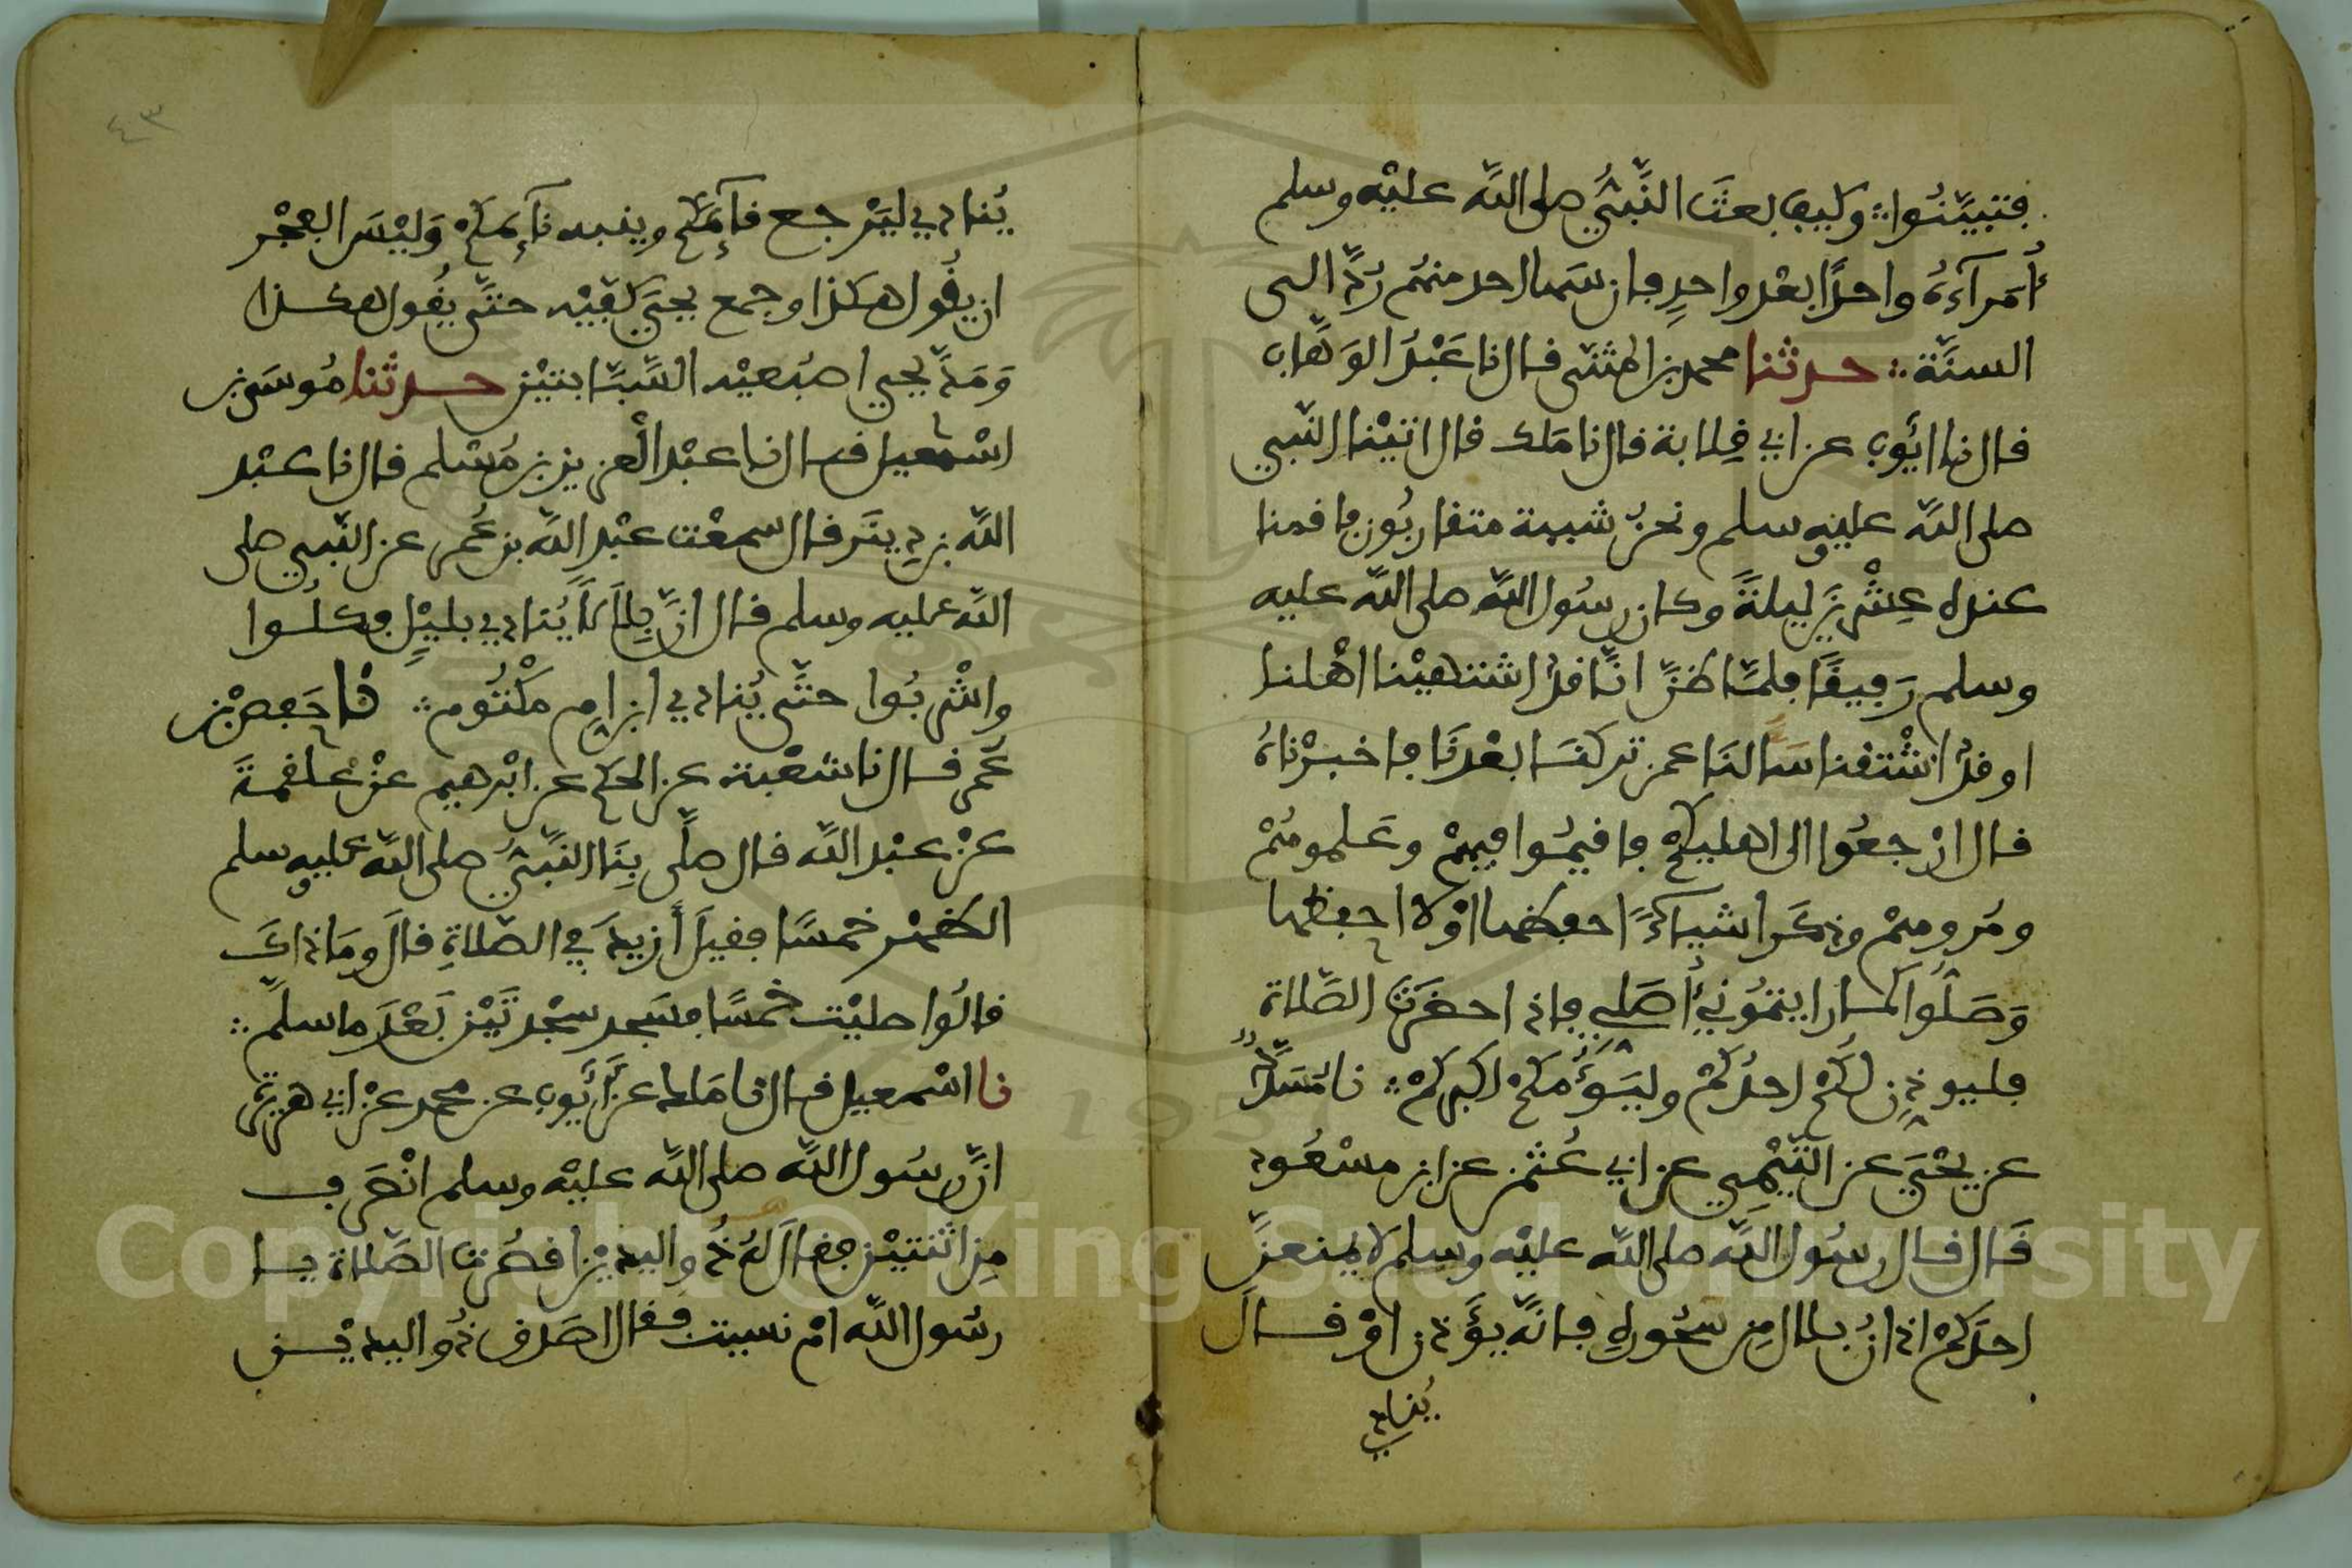 فتبيّنُوا ۞ وكيف بعث النَّبيُّ صلى اللّه عليْه وسلم
أُمَرآءَهُ واحدًا بعْد واحدٍ فان سَها احد منهُم رُدَّ الى
السنَّة ۞ حدثنا محمد بن المثنى قال نا عَبْدُ الوَهَّاب
قال نا ايُّوب عن ابي قِلابة قال نا مَلك قال اتيْنا النّبي
صلى اللّه عليه وسلم ونحنُ شببة متقاربُون فاقمنا
عنده عِشْرِينَ ليلةً وكان رسُول اللّه صلى اللّه عليه
وسلم رَفيقًا فلمّا ظنّ انّا قدْ اشتهيْنا اهْلنا
او قدْ اشْتقنا سَالنَا عمن تركنَا بعْدنَا فاخبرْناهُ
قال ارْجعُوا الى اهليكُمْ فاقيمُوا فيهمْ وعَلموهُمْ
ومُروهمْ وذكَر اشياءً احفظها اوْ لا احفظها
وَصَلُّوا كما رايتمُوني أُصَلي فاذا حضَرَت الصّلاة
فليوذِن لكُمْ احدُكُمْ وليَؤُمّكمْ اكبركُمْ ۞ نا مُسَدَّدٌ
عن يحْيَى عن التَّيْمِي عن ابي عُثمن عن ابن مسْعُود
قَال قال رسُول اللّه صلى اللّه عليْه وسلم لا يمنعنّ
احدَكمْ اذانُ بلال مِن سَحُوره فانّه يؤَذن اوْ قال
يُنادي
٤٣
يُنادي ليَرْجع قآئمكُم وينبه نآئمكُمْ وَليْسَ الفجْر
ان يقُول هكذا وجمع يحيَى كفيْه حتَّى يقُول هكذا
وَمَدَّ يحيى اصْبُعيْه السَّبّابتيْن حدثنا مُوسَى بن
اسْمعيل قال نا عبْد الْعزيز بن مُسْلم قال نا عبْد
اللّه بن دِينَر قال سمعْت عبْد اللّه بن عُمر عن النّبي صلى
اللّه عليه وسلم قال انّ بِلالًا يُنادي بليْلٍ فكلُوا
واشْربُوا حتَّى يُنادي ابن امِ مكْتُوم ۞ نا حَفص بْن
عُمر قال نا شعْبة عن الحكم عن ابْرهيم عنْ علقمةَ
عنْ عبْد اللّه قال صلَّى بِنَا النَّبيُّ صلى اللّه عليه وسلم
الظهْر خمسًا فقيلَ أَزيدَ في الصّلاةِ قالَ ومَا ذاكَ
قالُوا صليْت خمسًا فسَجد سجْدتَيْن بَعْدَ ما سلمَ ۞
نا اسْمعيل قال نا مَالك عنْ أَيُّوب عن محمد عنْ ابي هريرة
انَّ رسُول اللّه صلى اللّه عليْه وسلم انْصَرف
مِن اثنتيْن فقال لهُ ذُو اليديْن اقصُرت الصّلاة يا
رسُول اللّه امْ نسيت فقال اصَدق ذُو اليديْن
Copyright © King Saud University